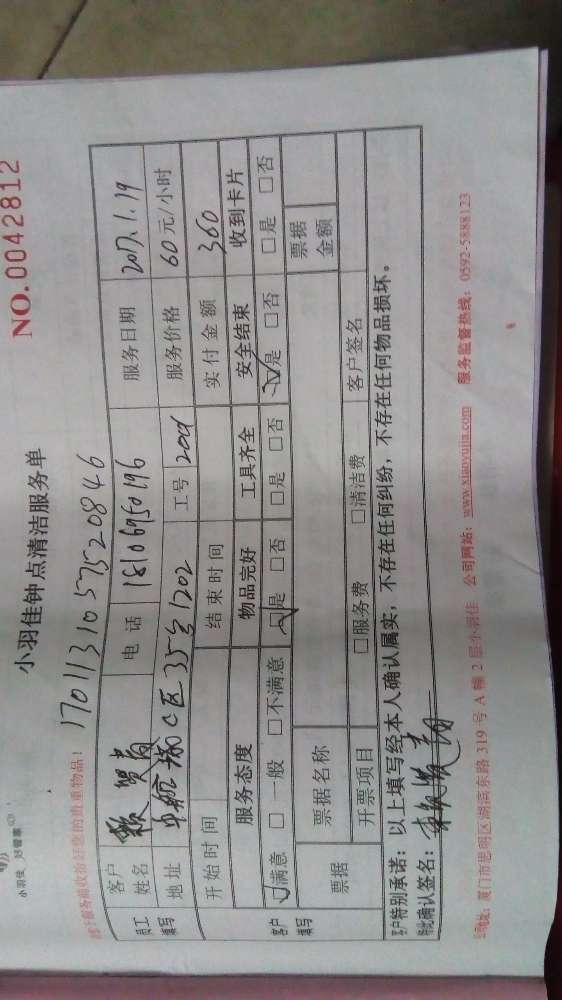 小羽佳，好管家
小羽佳钟点清洁服务单
NO.0042812
17011310575208 46
客户姓名 电话 18106950196 服务日期 2017.1.19
员工填写
地址 C区35号1202 工号 2001 服务价格 60元/小时
开始时间 结束时间 实付金额 360
服务态度 物品完好 工具齐全 安全结束 收到卡片
客户填写
☑满意 □一般 □不满意 ☑是 □否 □是 □否 ☑是 □否 □是 □否
票据 票据名称 票据金额
开票项目 □服务费 □清洁费 客户签名
客户特别承诺：以上填写经本人确认属实，不存在任何纠纷，不存在任何物品损坏。
特此确认签名：
公司地址：厦门市思明区湖滨东路319号A幢2层小羽佳 公司网站：www.xiaoyujia.com 服务监督热线：0592-5888123